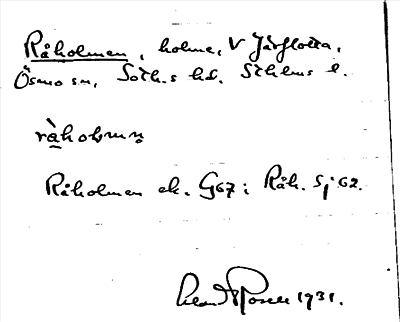 Råholmen, holme, V Järflotta,
Ösmo sn, Soth.s hd. Sthlms l.
råholmen
Råholmen ek. G67; Råh. Sj 62.
1931.